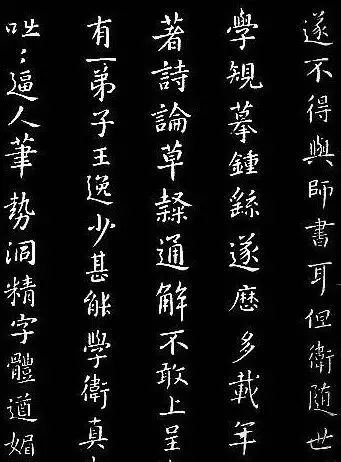 遂不得與師書耳但衛隨世
學規摹鍾繇遂歷多載年
著詩論草隸通解不敢上呈
有一弟子王逸少甚能學衛真
咄咄逼人筆勢洞精字體遒媚